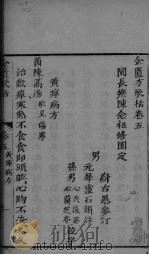 金匱方歌括卷五
閩長樂陳念祖修園定
男
蔚古愚參訂
元犀靈石韻註
孫男
心典徽菴
心蘭芝亭
仝校字
黃癉病方
茵陳蒿湯
治穀癉寒熱不食食即頭眩心胸不安
黃癉病方